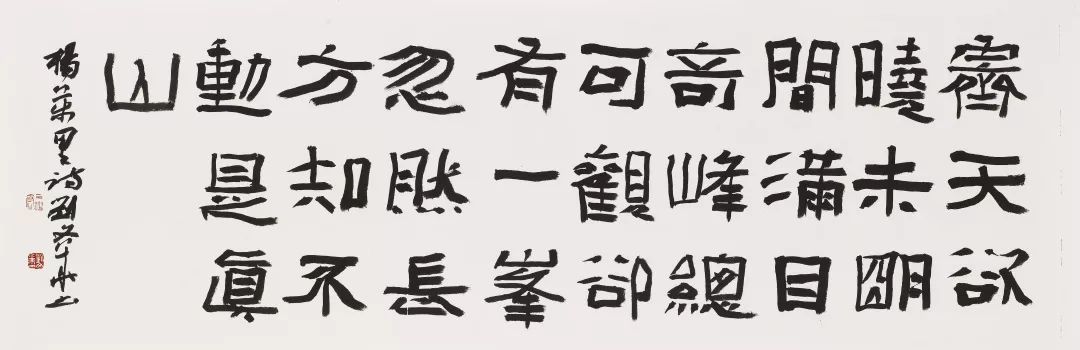 霽天欲
曉未明
間滿目
奇峰總
可觀卻
有一峯
忽然長
方知不
動是眞
山
楊萬里詩劉